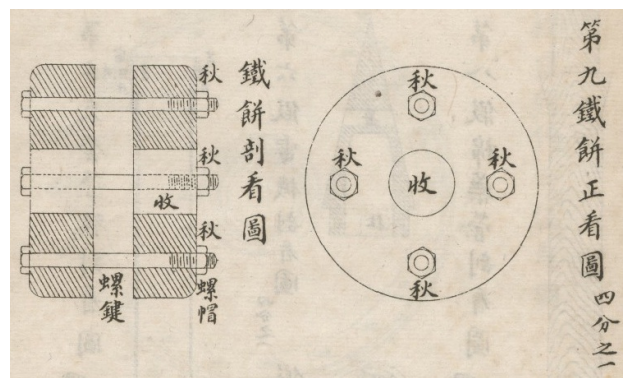 第九鐵餅正看圖 四分之一
秋
秋
秋
收
秋
鐵餅剖看圖
秋
秋
收
秋
螺帽
螺鍵